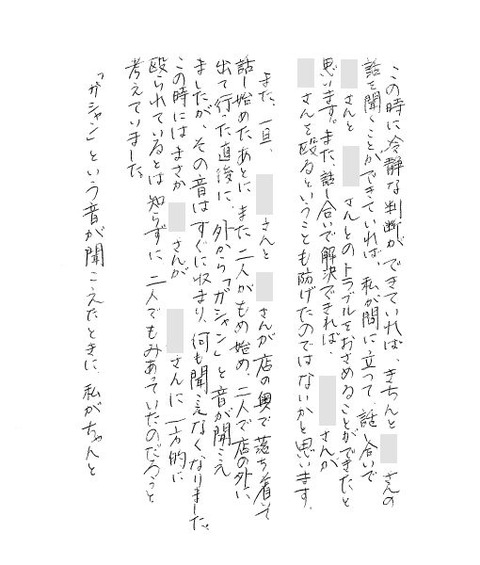 この時に冷静な判断ができていれば、きちんと さんの
話を聞くことができていれば、私が間に立って、話し合いで
さんと さんとのトラブルをおさめることができたと
思います。また、話し合いで解決できれば、 さんが
さんを殴るということも防げたのではないかと思います。
また、一旦、 さんと さんが店の奥で落ち着いて
話し始めたあとに、また二人がもめ始め、二人で店の外に
出て行った直後に、外から「ガシャン」と音が聞こえ
ましたが、その音はすぐに収まり、何も聞こえなくなりました。
この時にはまさか さんが さんに一方的に
殴られているとは知らずに、二人でもみあっていたのだろうと
考えていました。
「ガシャン」という音が聞こえたときに、私がちゃんと